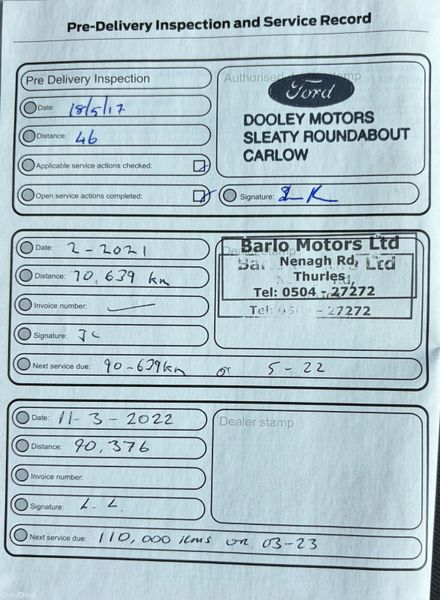 Pre-Delivery Inspection and Service Record
Pre Delivery Inspection
Date: 18/5/17
Distance: 46
Applicable service actions checked:
Open service actions completed:
Authorised stamp
Ford
DOOLEY MOTORS
SLEATY ROUNDABOUT
CARLOW
Signature:
Date: 2-2021
Distance: 70,639 km
Invoice number:
Signature: JC
Next service due: 90-639km or 5-22
Barlo Motors Ltd
Nenagh Rd,
Thurles
Tel: 0504 - 27272
Date: 11-3-2022
Distance: 90,376
Invoice number:
Signature: L.L.
Next service due: 110,000 kms or 03-23
Dealer stamp
DoneDeal